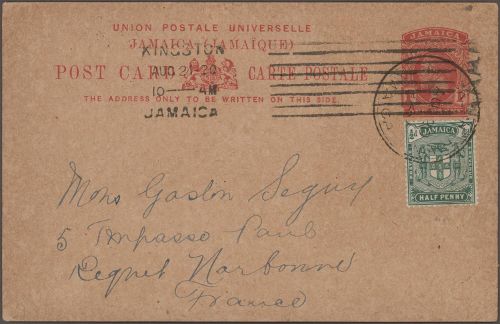 UNION POSTALE UNIVERSELLE
JAMAICA (JAMAÏQUE)
POST CARD CARTE POSTALE
THE ADDRESS ONLY TO BE WRITTEN ON THIS SIDE.
KINGSTON
AUG 21 20
10 AM
JAMAICA
JAMAICA
JAMAICA
HALF PENNY
Mons Gaston Seguy
5 Impasse Paul
Narbonne
France